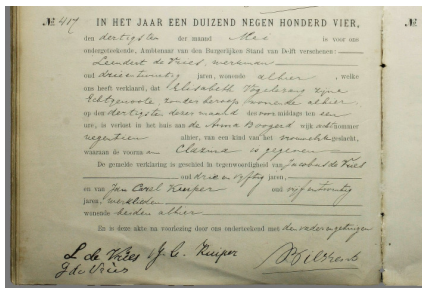 № 417 IN HET JAAR EEN DUIZEND NEGEN HONDERD VIER, №
den dertigsten der maand Mei is voor ons
ondergeteekende, Ambtenaar van den Burgerlijken Stand van Delft verschenen:
Leendert de Vries, werkman
oud drieentwintig jaren, wonende alhier, welke
ons heeft verklaard, dat Elisabeth Vogelezang zijne
Echtgenoote, zonder beroep wonende alhier,
op den dertigsten dezer maand des voormiddags ten een
ure, is verlost in het huis aan de Anna Boogerd wijk nummer
negentien alhier, van een kind van het vrouwelijk geslacht,
waaraan de voornaam Clazina is gegeven
De gemelde verklaring is geschied in tegenwoordigheid van Jacobus de Vries
oud drie en vijftig jaren,
en van Jan Carel Kuiper oud vijf entwintig
jaren, werklieden
wonende beiden alhier
En is deze akte na voorlezing door ons onderteekend met
L de Vries J. C. Kuiper
J de Vries